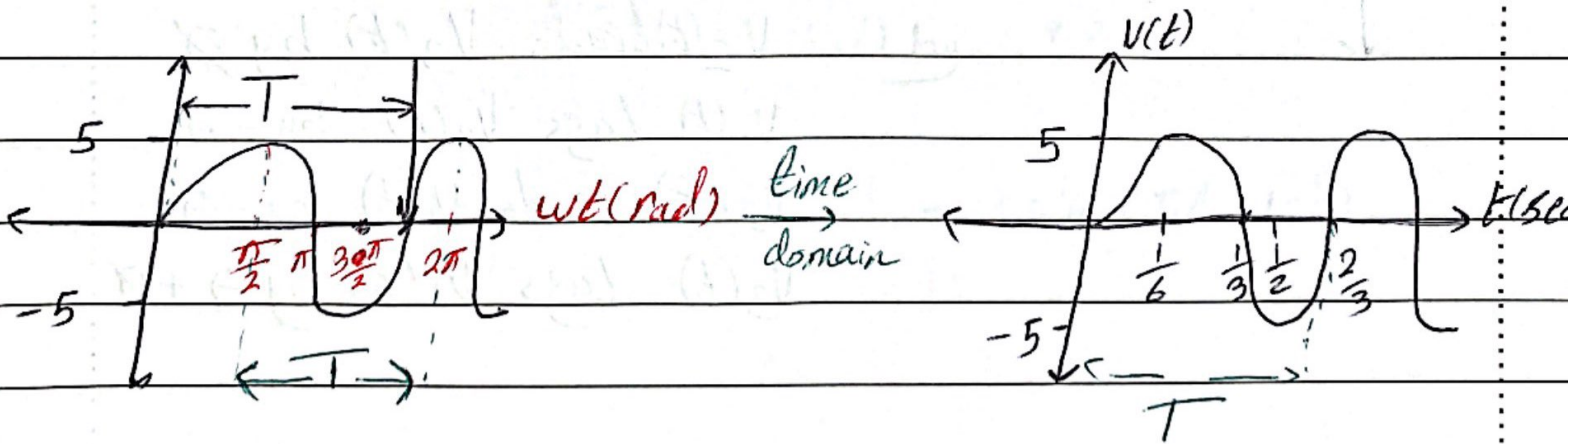 T
5
-5
π/2 π 3π/2 2π
wt(rad)
T
time
domain
v(t)
5
-5
1/6 1/3 1/2 2/3
t(sec
T